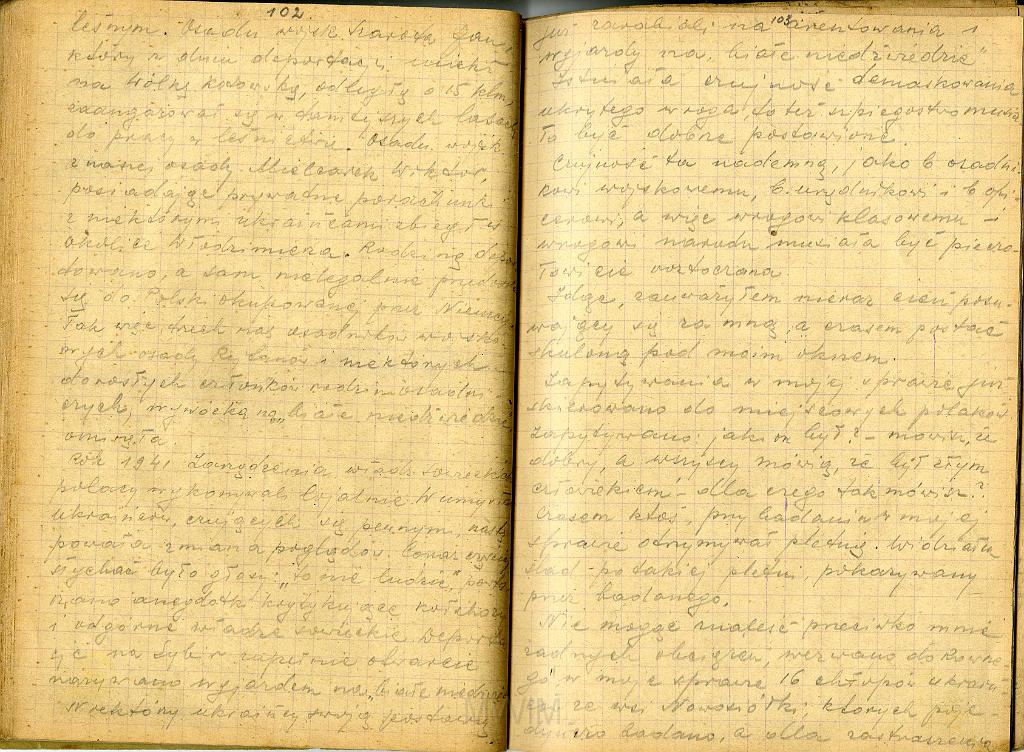 102
leśnym. Osadn. wojsk. Karota Jan,
który w dniu deportacji uciekł
na Wólkę Kotowską, odległą o 15 klm,
zaangażował się w tamtejszych lasach
do pracy w leśnictwie. Osadn. wojsk.
z naszej osady Mielczarek Wiktor,
posiadając prywatne porachunki
z niektórymi ukraińcami zbiegł w
okolice Włodzimierza. Rodzinę depor
towano, a sam nielegalnie przedostał
się do Polski okupowanej przez Niemców.
Tak więc trzech nas osadników wojsko-
wych osady i niektórych
dorosłych członków rodzin osadni-
czych, wywózka na „białe niedźwiedzie"
ominęła.
Rok 1941. Zarządzenia władz sowieckich
polacy wykonywali lojalnie. W umysłach
ukraińców, czujących się pewnymi, nastę
powała zmiana poglądów. Coraz częściej
słychać było głosy: „to nie ludzie", powta
rzano anegdotki krytykujące kołchozy
i odgórne władze sowieckie. Deporta
cję na Sybir zupełnie otwarcie
nazywano wyjazdem na „białe niedźwiedzie
Niektórzy ukraińcy swoją postawą
103
już zarabiali na aresztowania i
wyjazdy na „białe niedźwiedzie"
Istniała czujność demaskowania
ukrytego wroga, to też szpiegostwo musia
ło być dobrze postawione.
Czujność ta nademną, jako b. osadni-
kowi wojskowemu, b. urzędnikowi i b. ofi-
cerowi, a więc wrogowi klasowemu -
wrogowi narodu musiała być pieczo-
łowicie roztoczona.
Idąc, zauważyłem nieraz cień posu-
wający się za mną, a czasem postać
skuloną pod moim oknem.
Zapytywania w mojej sprawie już
skierowano do miejscowych polaków.
Zapytywano: jakim był? - mówisz, że
dobry, a wszyscy mówią, że był złym
człowiekiem - dla czego tak mówisz?
Czasem ktoś, przy badaniu w mojej
sprawie otrzymywał pletnię. Widziałem
ślad po takiej pletni, pokazywany
przez badanego.
Nie mogąc znaleść przeciwko mnie
żadnych obciążeń, wezwano do Równe-
go w mojej sprawie 16 chłopów ukraiń-
ców ze wsi Nowosiółki, których poje-
dyńczo badano, a dla zastraszenia